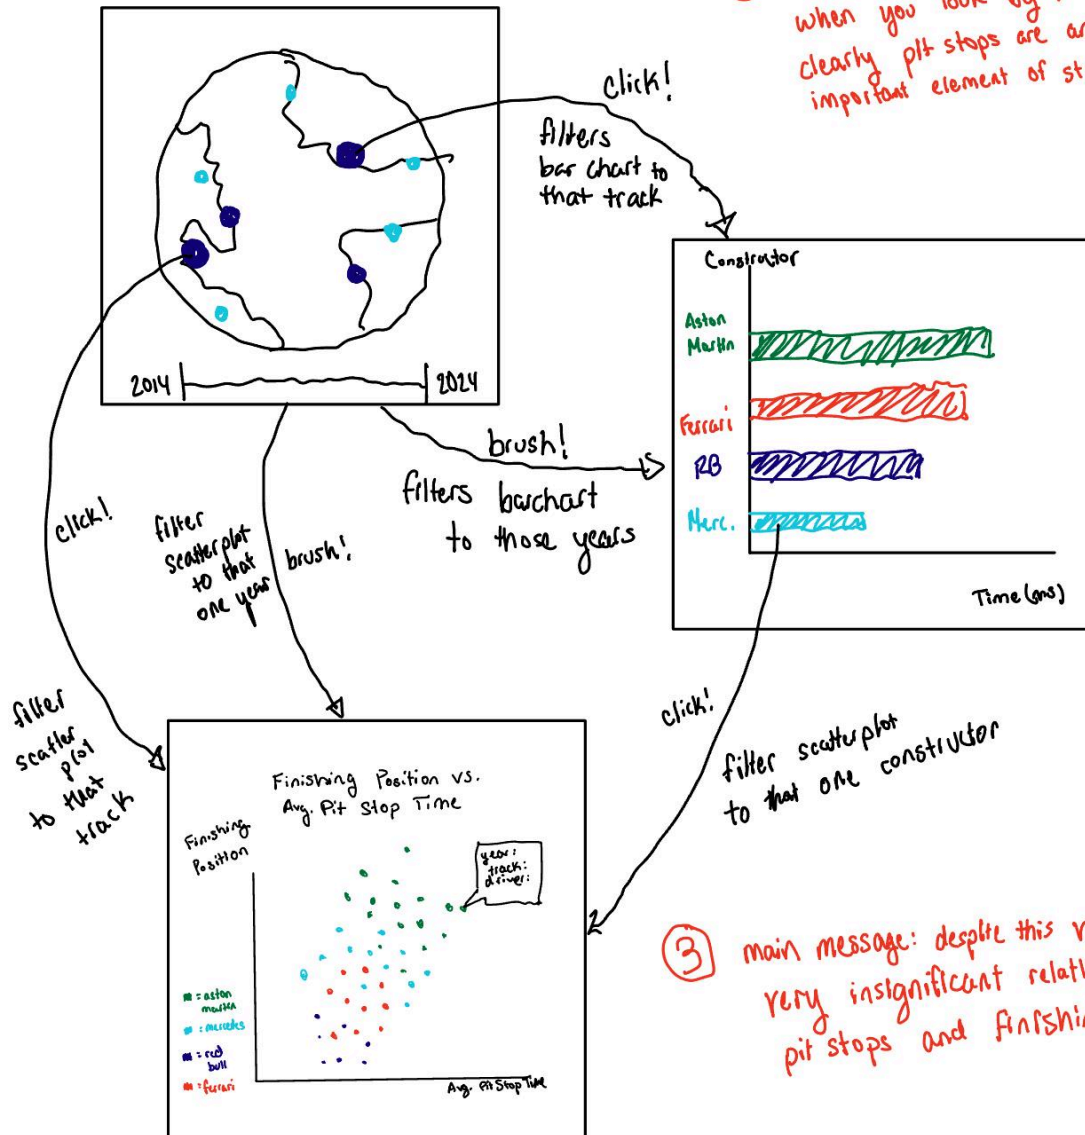 when you look by
clearly pit stops are an
important element of st
click!
filters
bar chart to
that track
2014
2024
Constructor
Aston
Martin
Ferrari
RB
Merc.
Time (ms)
brush!
filters barchart
to those years
click!
filter
scatterplot
to that
one year
brush!
filter
scatter
plot
to that
track
click!
filter scatterplot
to that one constructor
Finishing Position vs.
Avg. Pit Stop Time
Finishing
Position
year:
track:
driver:
= aston
martin
= mercedes
= red
bull
= ferrari
Avg. Pit Stop Time
3 main message: despite this
very insignificant
pit stops and